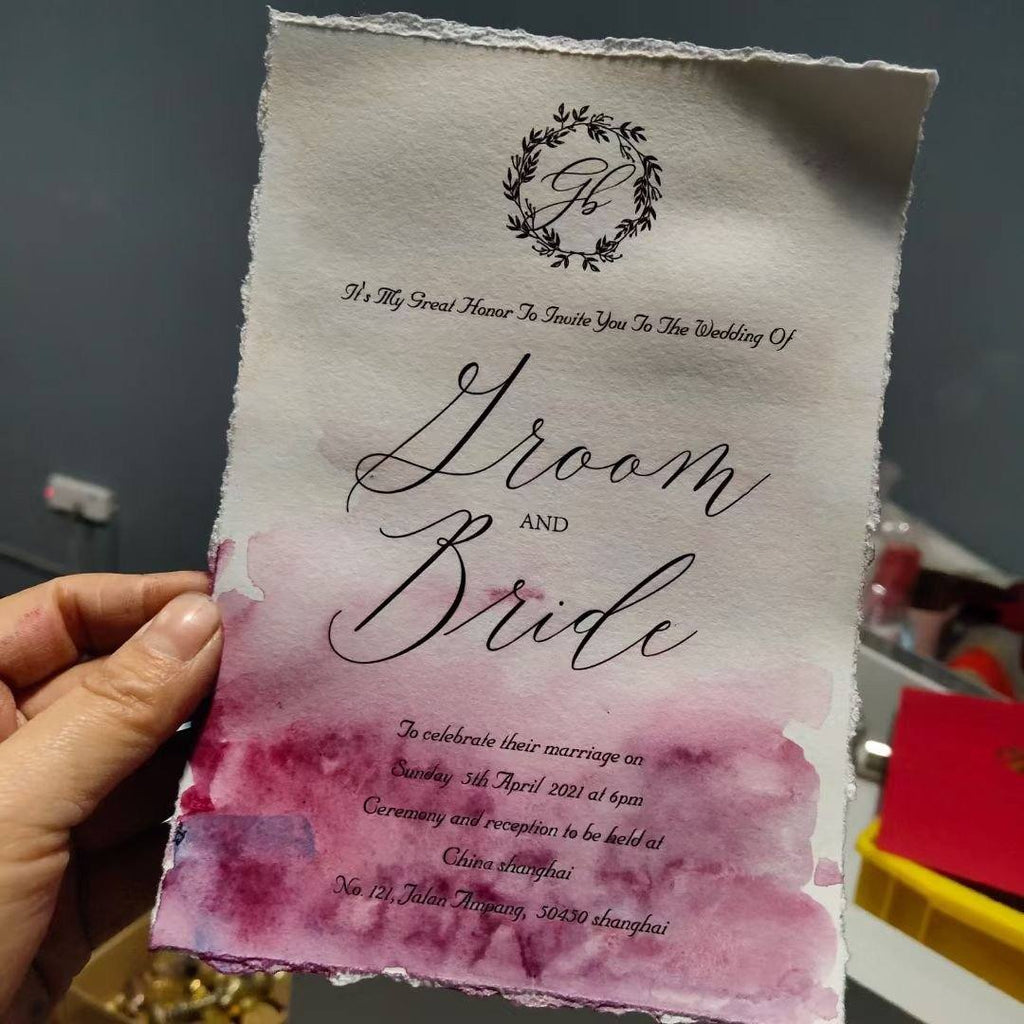 Gb
It's My Great Honor To Invite You To The Wedding Of
Groom
AND
Bride
To celebrate their marriage on
Sunday 5th April 2021 at 6pm
Ceremony and reception to be held at
China shanghai
No. 121, Jalan Ampang, 50450 shanghai